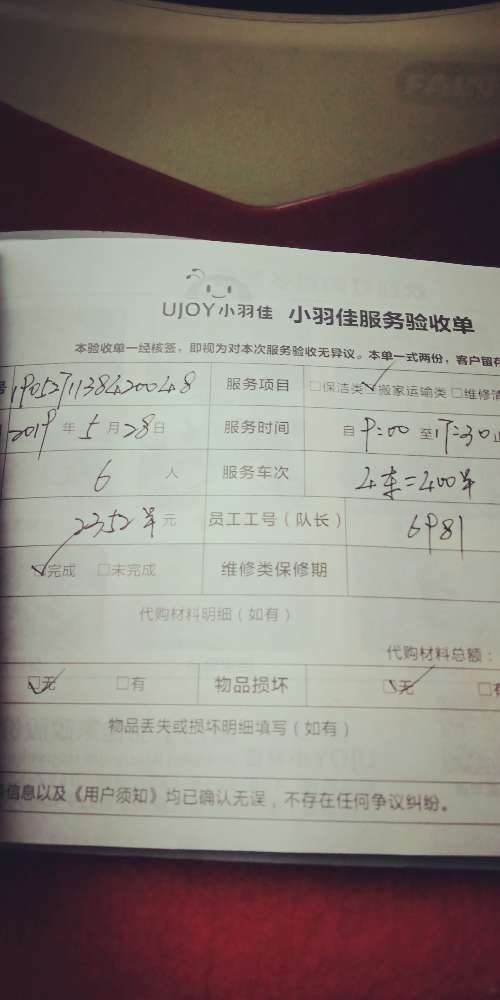 FAIN
UJOY小羽佳 小羽佳服务验收单
本验收单一经核签，即视为对本次服务验收无异议。本单一式两份，客户留存
号 1905271138420048 服务项目 □保洁类 ☑搬家运输类 □维修清
2019 年 5 月 28 日 服务时间 自 9:00 至 17:30 止
6 人 服务车次 4车=400
2352 元 员工工号（队长） 6981
☑完成 □未完成 维修类保修期
代购材料明细（如有）
代购材料总额：
☑无 □有 物品损坏 ☑无 □有
物品丢失或损坏明细填写（如有）
信息以及《用户须知》均已确认无误，不存在任何争议纠纷。